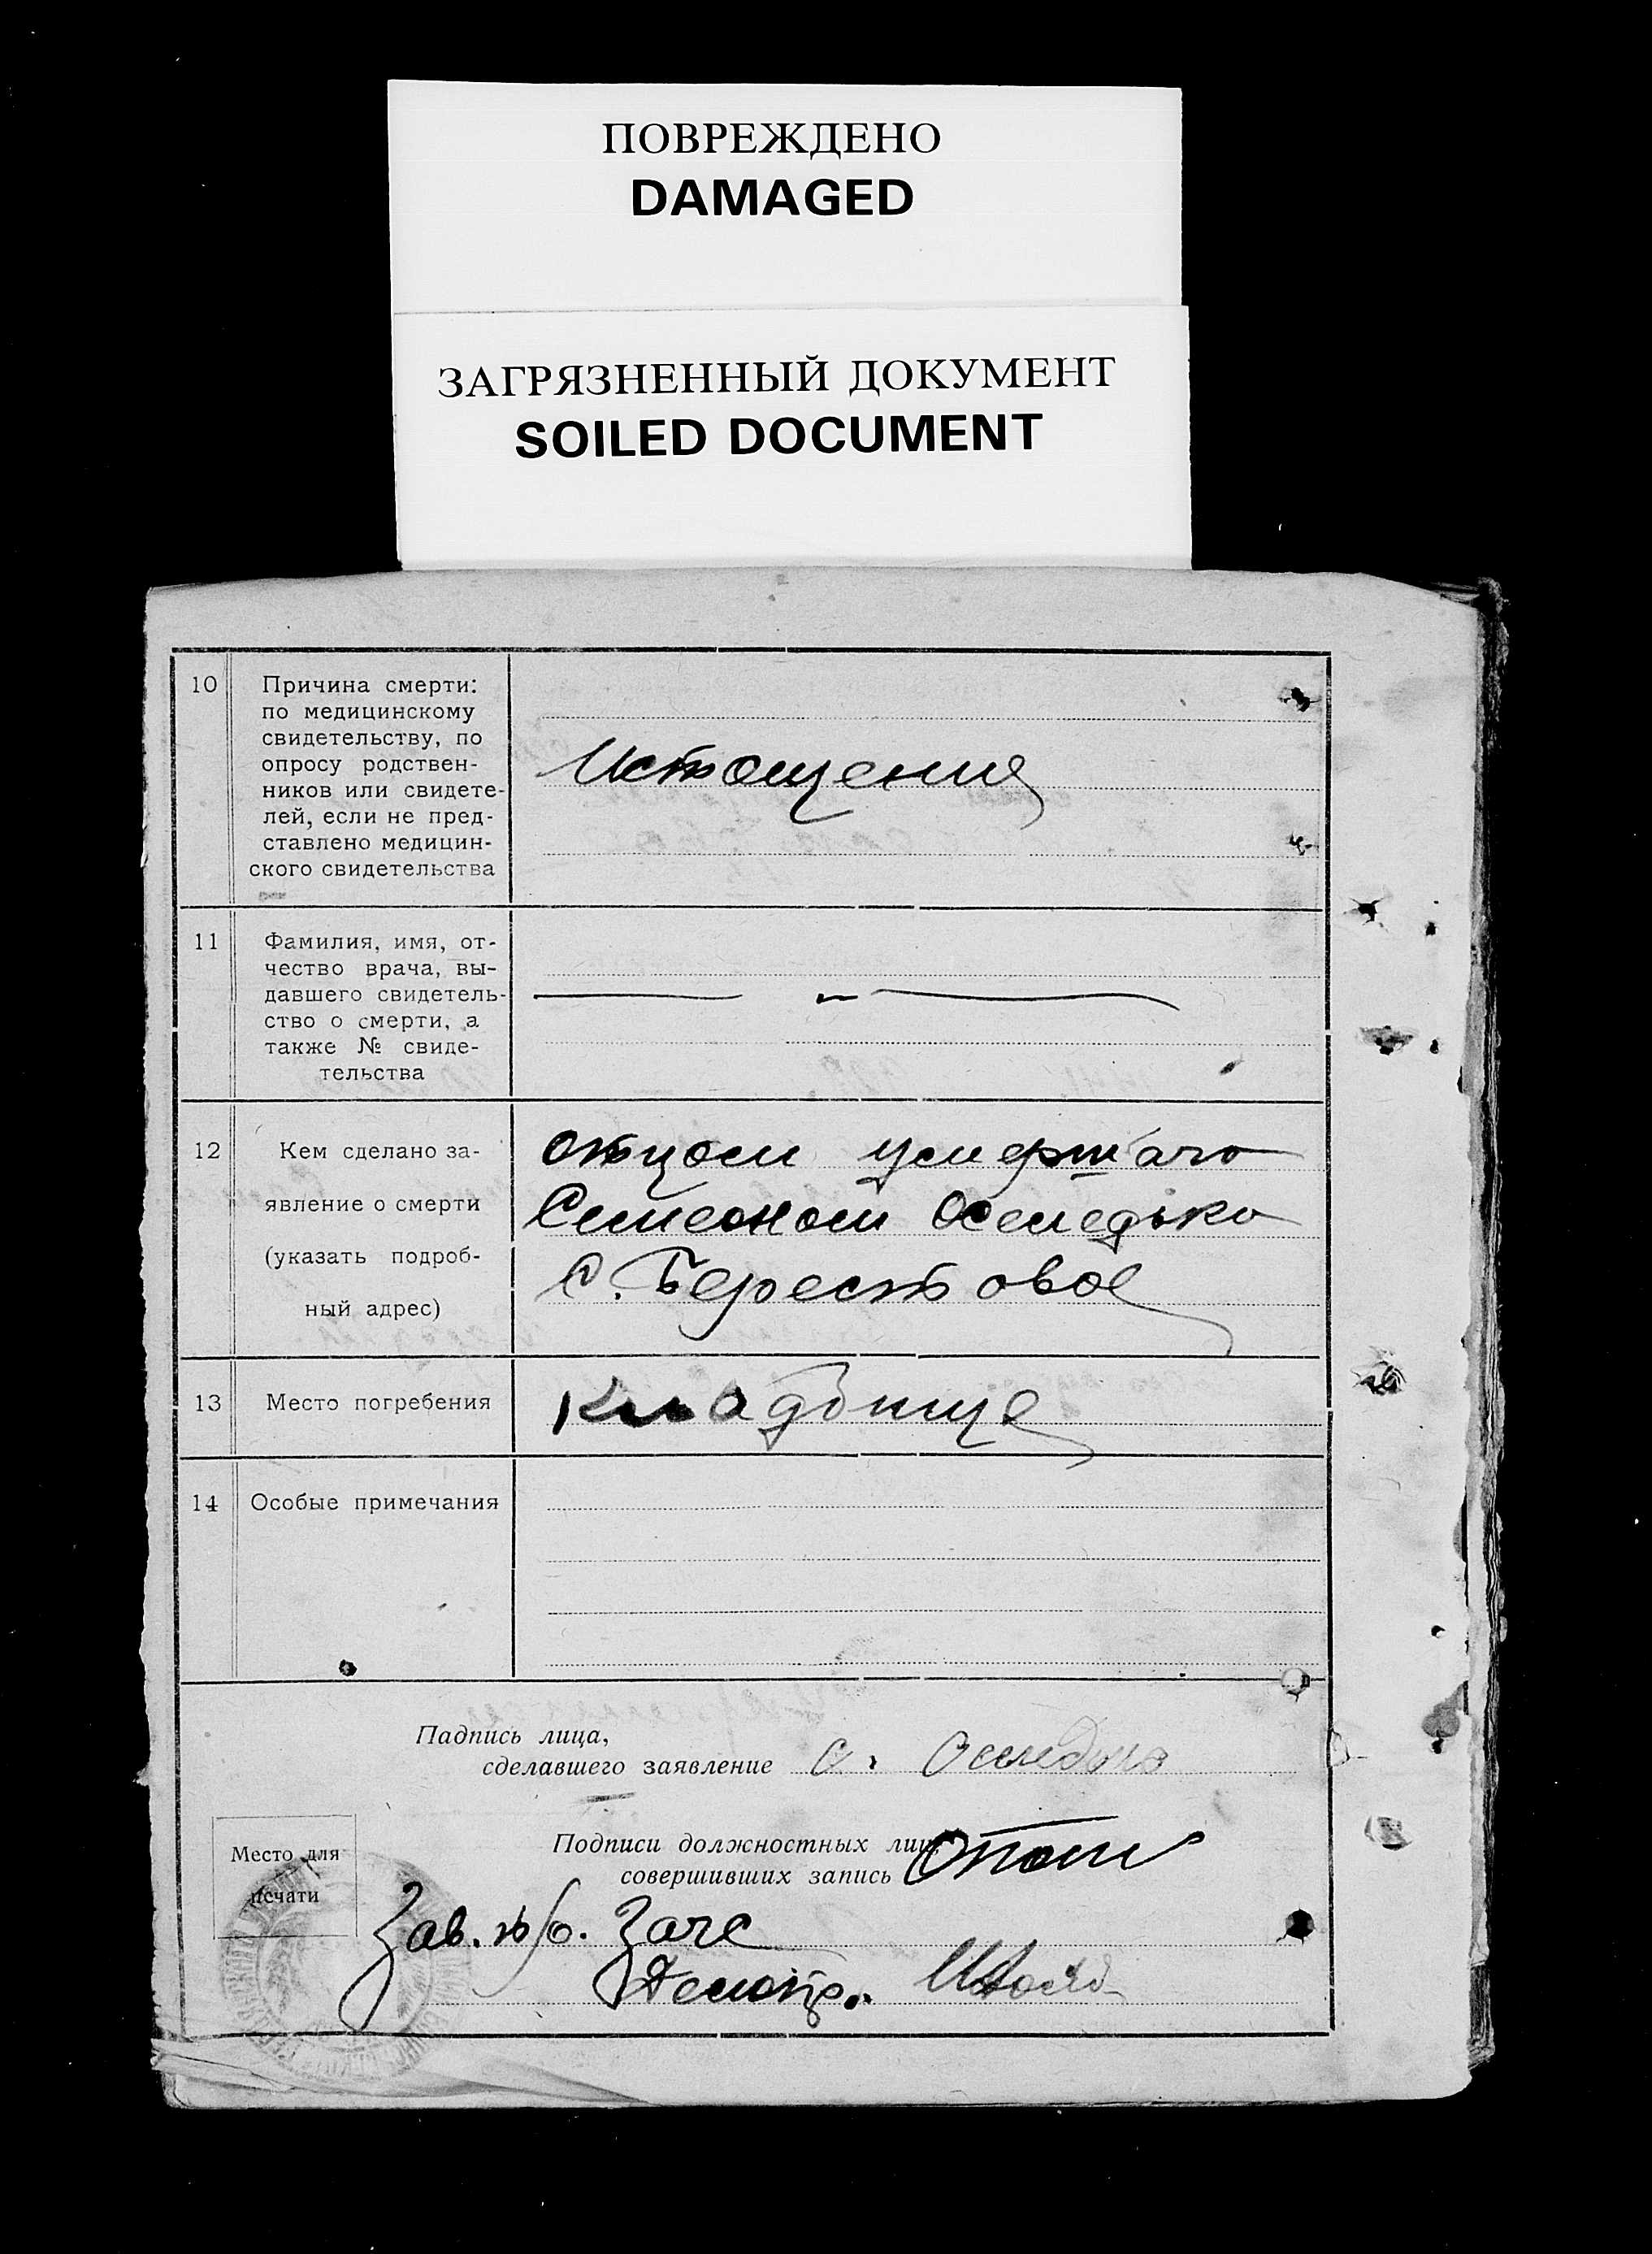 ПОВРЕЖДЕНО
DAMAGED
ЗАГРЯЗНЕННЫЙ ДОКУМЕНТ
SOILED DOCUMENT
10
Причина смерти:
по медицинскому
свидетельству, по
опросу родствен-
ников или свидете-
лей, если не пред-
ставлено медицин-
ского свидетельства
Истощение
11
Фамилия, имя, от-
чество врача, вы-
давшего свидетель-
ство о смерти, а
также № свиде-
тельства
12
Кем сделано за-
явление о смерти
(указать подроб-
ный адрес)
отцом умершаго
Семеоном Оселедько
С. Берестовое
13
Место погребения
Кладбище
14
Особые примечания
Падпись лица,
сделавшего заявление С.
Место для
печати
Подписи должностных лиц,
совершивших запись
Зав. Загс